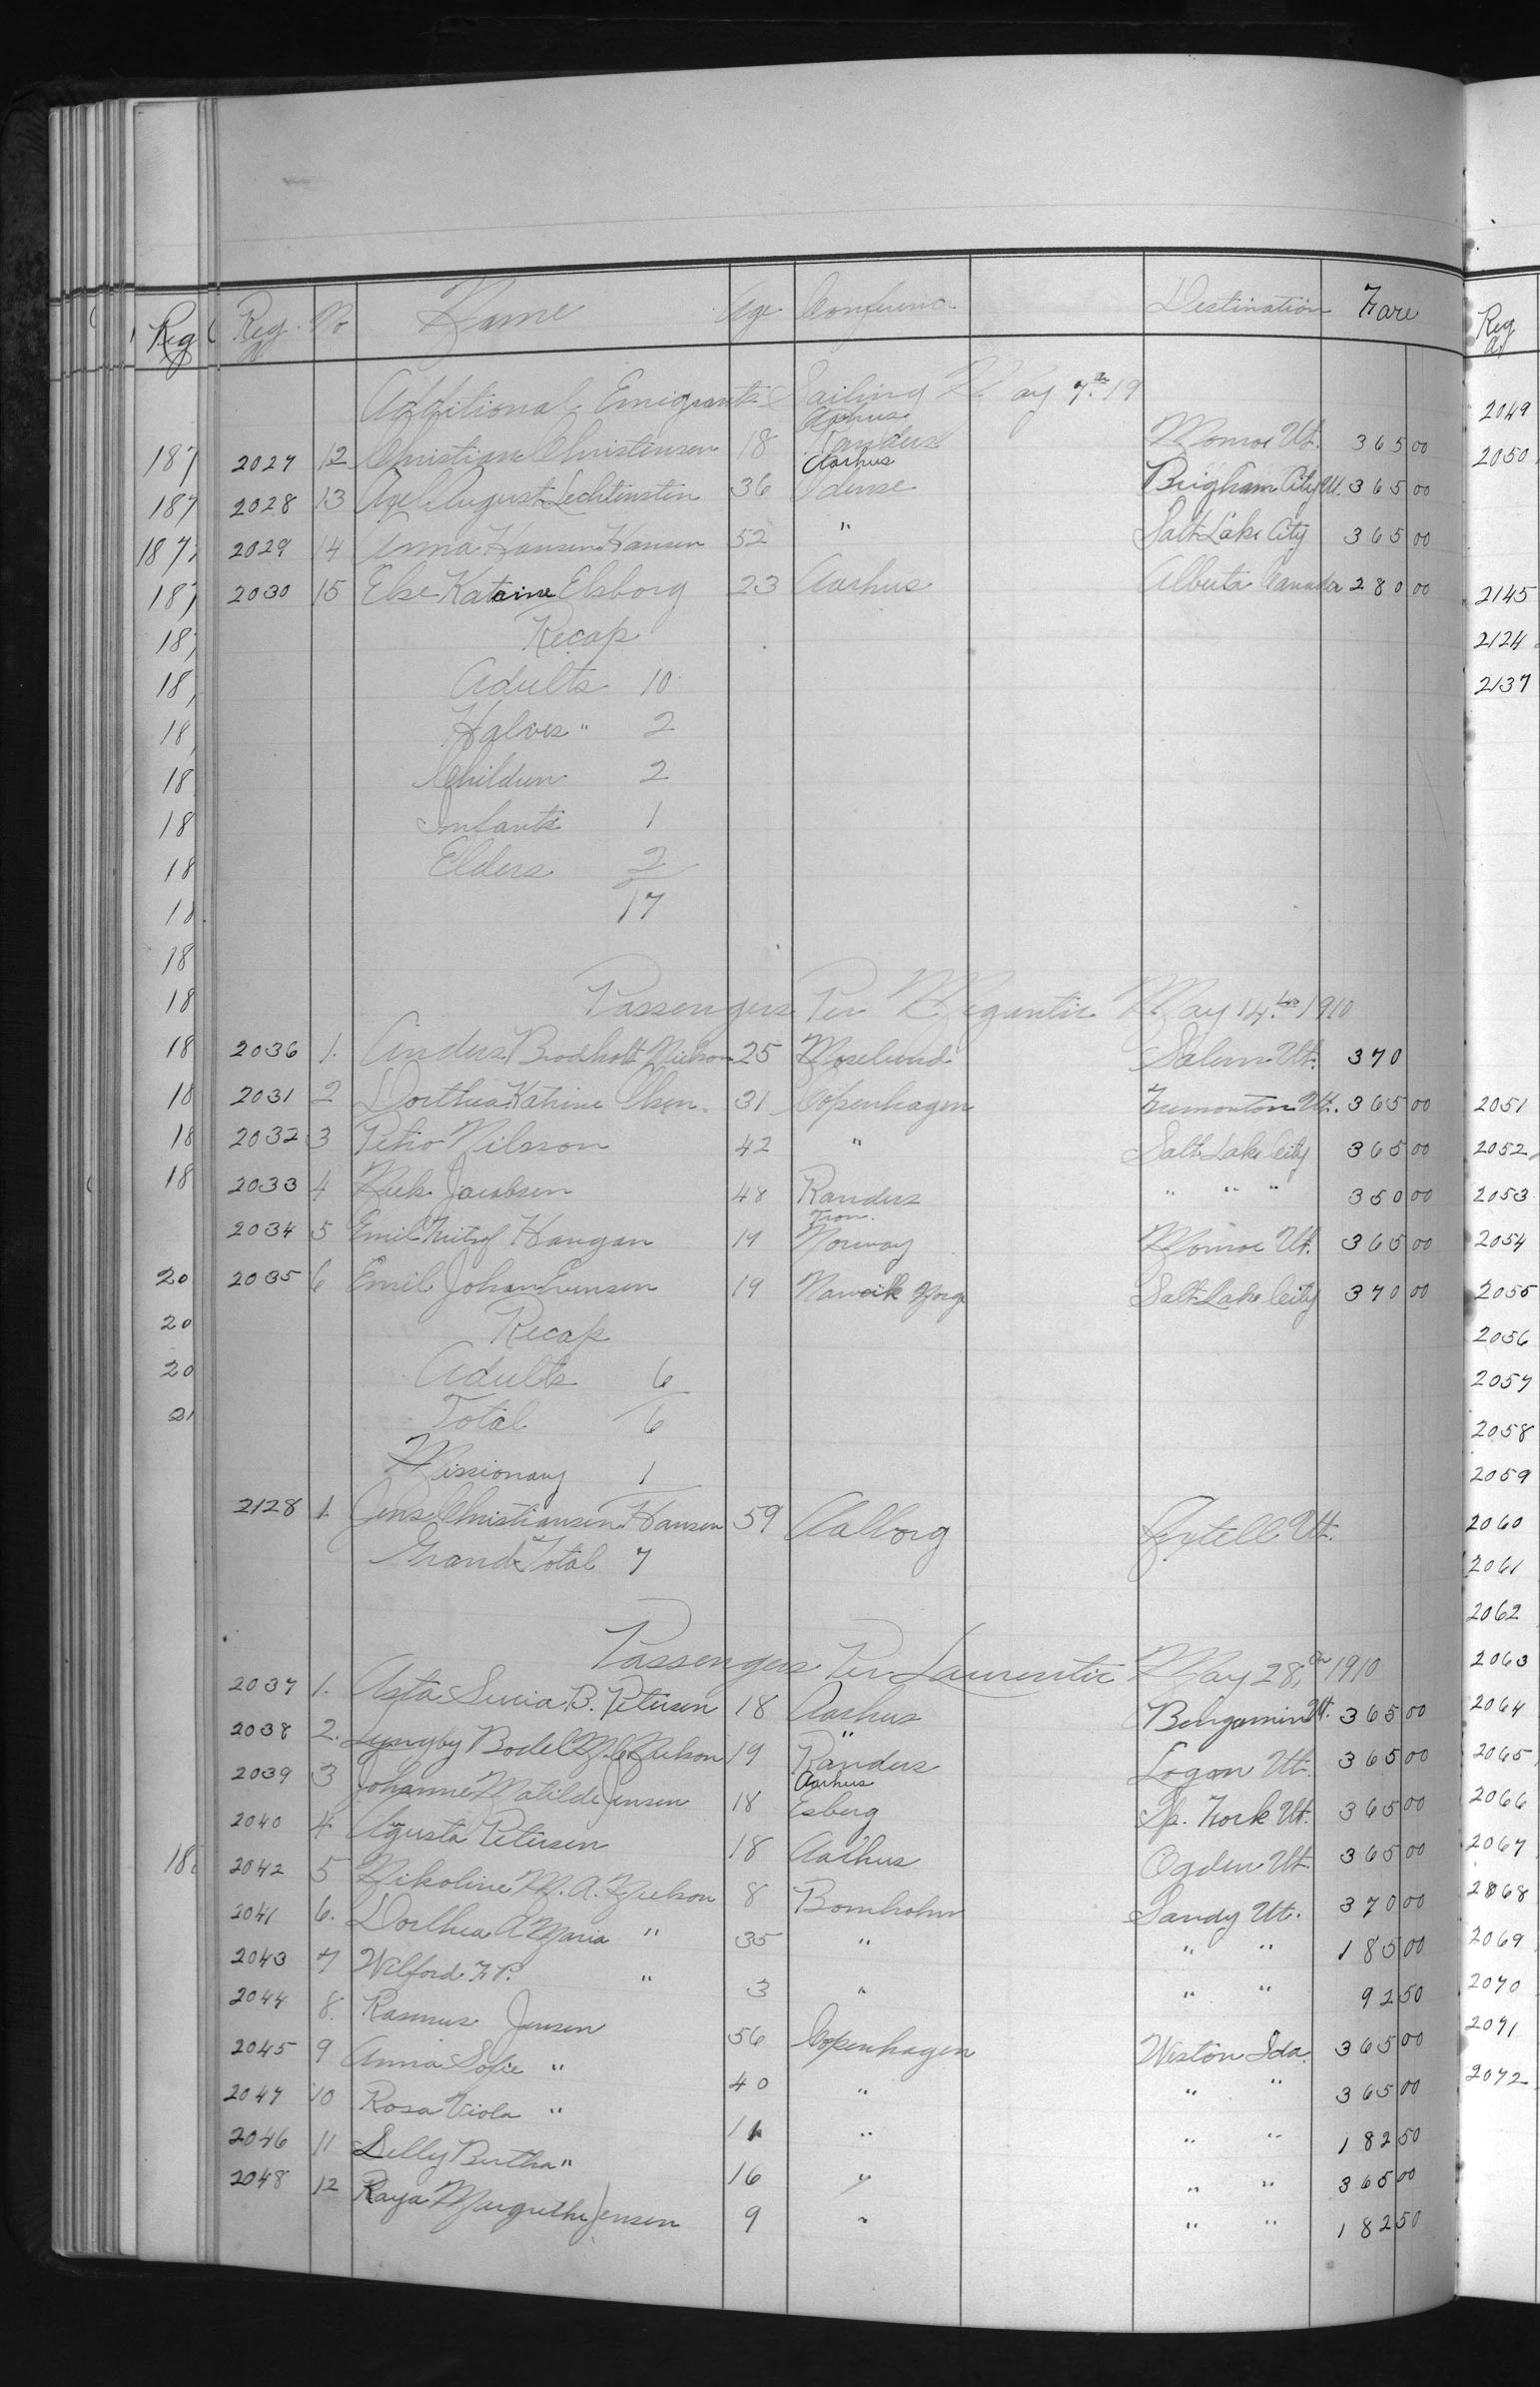 Reg. No Name Age Conference Destination Fare
Additional Emigrants Sailing May 7th 19
Aarhus
2027 12 Christian Christensen 18 Randers Monroe Ut. 365 00
Aarhus
2028 13 Axel August Lechtenstein 36 Odense Brigham City Ut. 365 00
2029 14 Anna Hansen Hansen 52 " Salt Lake City 365 00
2030 15 Else Katrine Elsborg 23 Aarhus Alberta Canada 280 00
Recap
Adults 10
Halves " 2
Children 2
Infants 1
Elders 2
17
Passengers Per Megantic May 14th 1910
2036 1. Anders Brodholt Nielson 25 Moselund Salem Ut. 370
2031 2 Dorthea Katrine Olsen. 31 Copenhagen Tremonton Ut. 365 00
2032 3 Nilsson 42 " Salt Lake City 365 00
2033 4 Jacobsen 48 Randers " " " 350 00
Tron.
2034 5 Emil Haugan 19 Norway Monroe Ut. 365 00
2035 6 Emil Johan Evensen 19 Narvik Norge Salt Lake City 370 00
Recap
Adults 6
Total 6
Missionary 1
2128 1. Jens Christiansen Hansen 59 Aalborg Axtell Ut.
Grand Total 7
Passengers Per Laurentic May 28, th 1910
2037 1. Asta B. Petersen 18 Aarhus Bengamin Ut. 365 00
"
2038 2. Lyngby Bodel M. C. Nielson 19 Randers Logan Ut. 365 00
Aarhus
2039 3 Johanne Matilde Jensen 18 Esberg Sp. Fork Ut. 365 00
2040 4 Agusta Petersen 18 Aarhus Ogden Ut. 365 00
2042 5 Nikoline M. A. Nielson 8 Bornholm Sandy Ut. 370 00
2041 6. Dorthea A Maria " 35 " " " 185 00
2043 7 Wilford F. P. " 3 " " " 92 50
2044 8. Rasmus Jensen 56 Copenhagen Weston Ida. 365 00
2045 9 Anna Sofie " 40 " " " 365 00
2047 10 Rosa Viola " 11 " " " 182 50
2046 11 Lilly Bertha " 16 " " " 365 00
2048 12 Raya Margrethe Jensen 9 " " " 182 50
Reg
187
187
187
187
18
18
18
18
18
18
18
18
18
18
18
18
18
20
20
20
21
18
Reg
2049
2050
2145
2124
2137
2051
2052
2053
2054
2055
2056
2057
2058
2059
2060
2061
2062
2063
2064
2065
2066
2067
2068
2069
2070
2071
2072